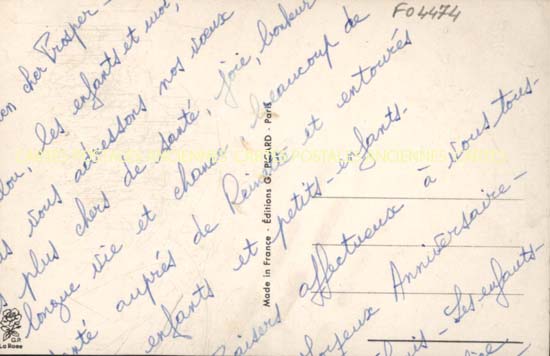 F04474
en cher Prosper -
lou, les enfants et moi,
s vous adressons nos vœux
s plus chers de santé, joie, bonheur
longue vie et chance, beaucoup de
nté auprès de et entourés
enfants et petits-enfants.
Baisers affectueux à vous tous.
Joyeux Anniversaire -
Les enfants.
Made in France - Éditions G. PICARD - Paris
CARTES-POSTALES-ANCIENNES
La Rose